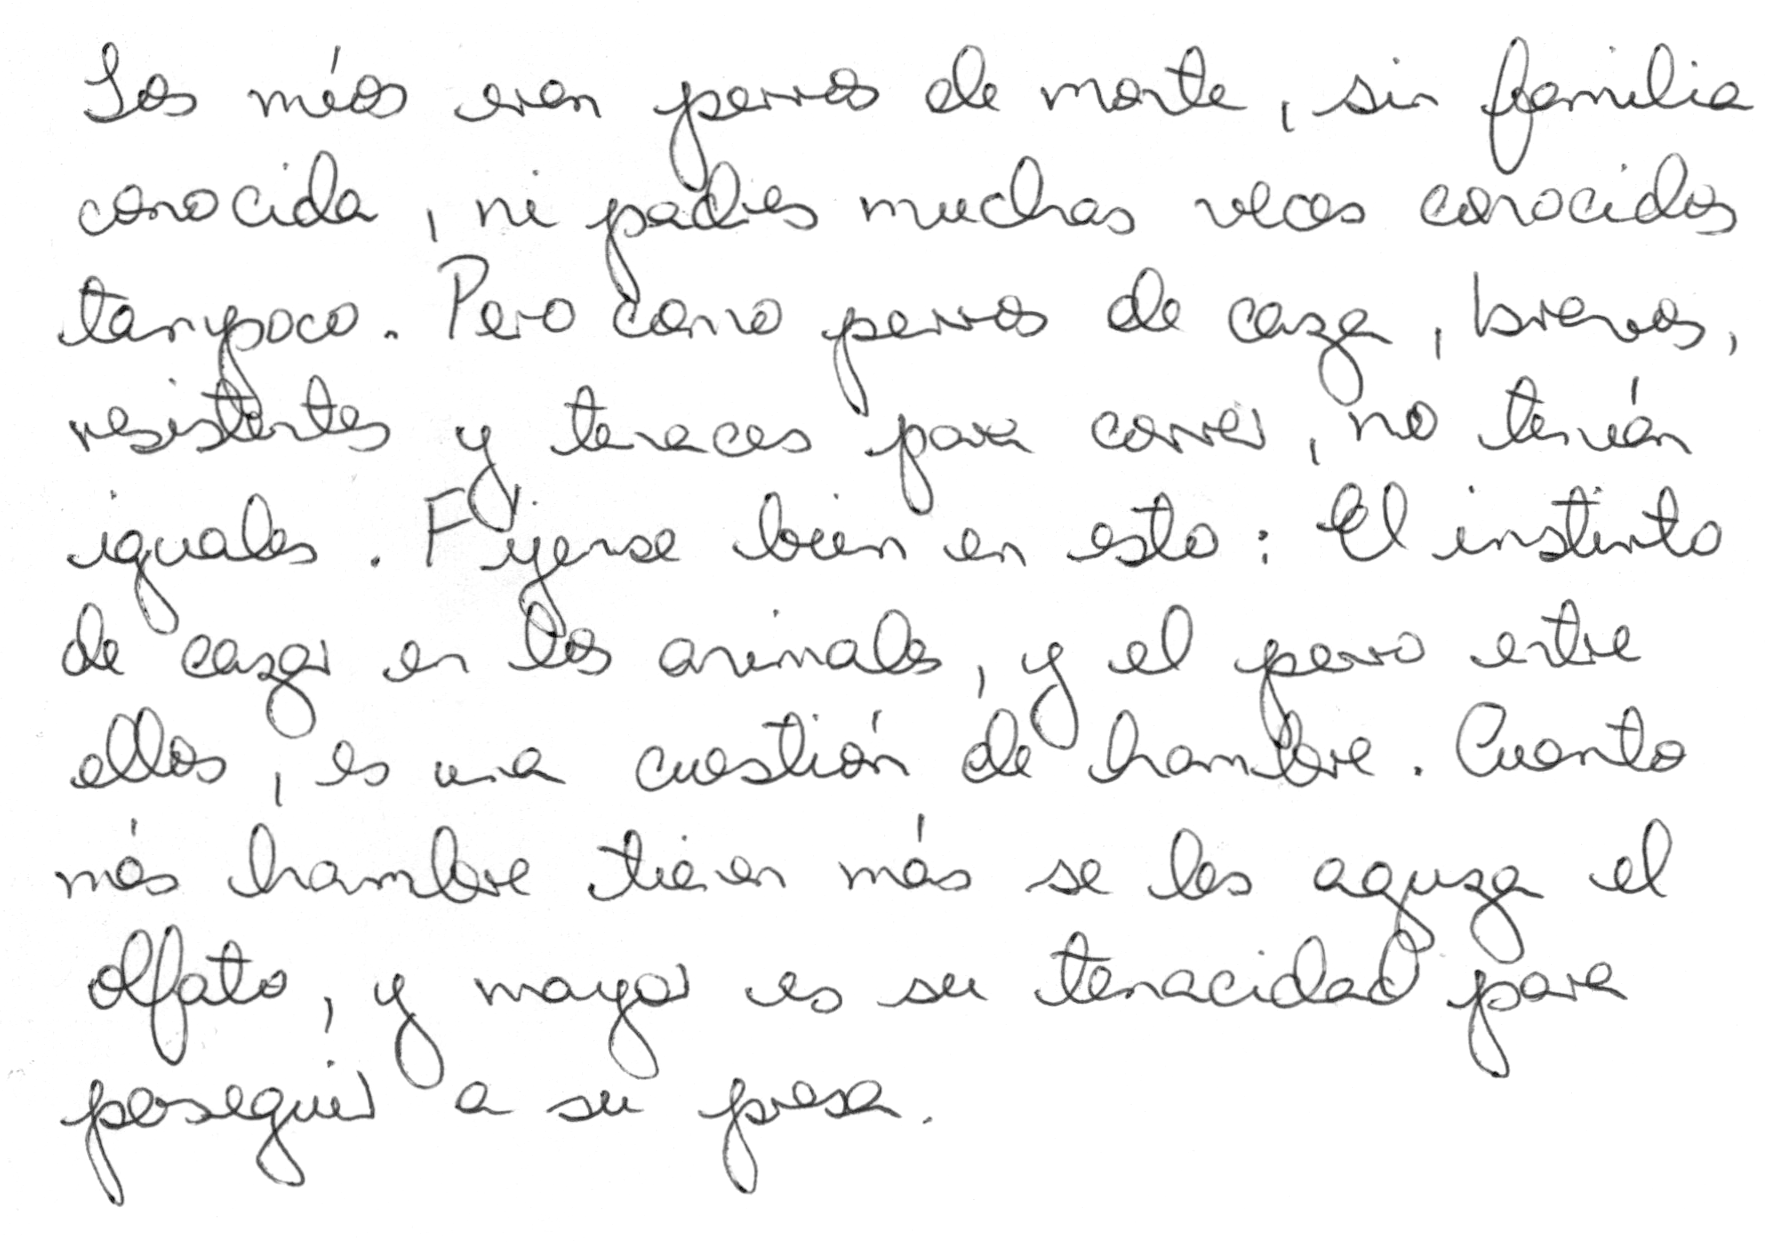 Los míos eran perros de monte, sin familia
conocida, ni padres muchas veces conocidos
tampoco. Pero como perros de caza, bravos,
resistentes y tenaces para correr, no tenían
iguales. Fíjense bien en esto: El instinto
de cazar en los animales, y el perro entre
ellos, es una cuestión de hambre. Cuanto
más hambre tienen más se les aguza el
olfato, y mayor es su tenacidad para
perseguir a su presa.